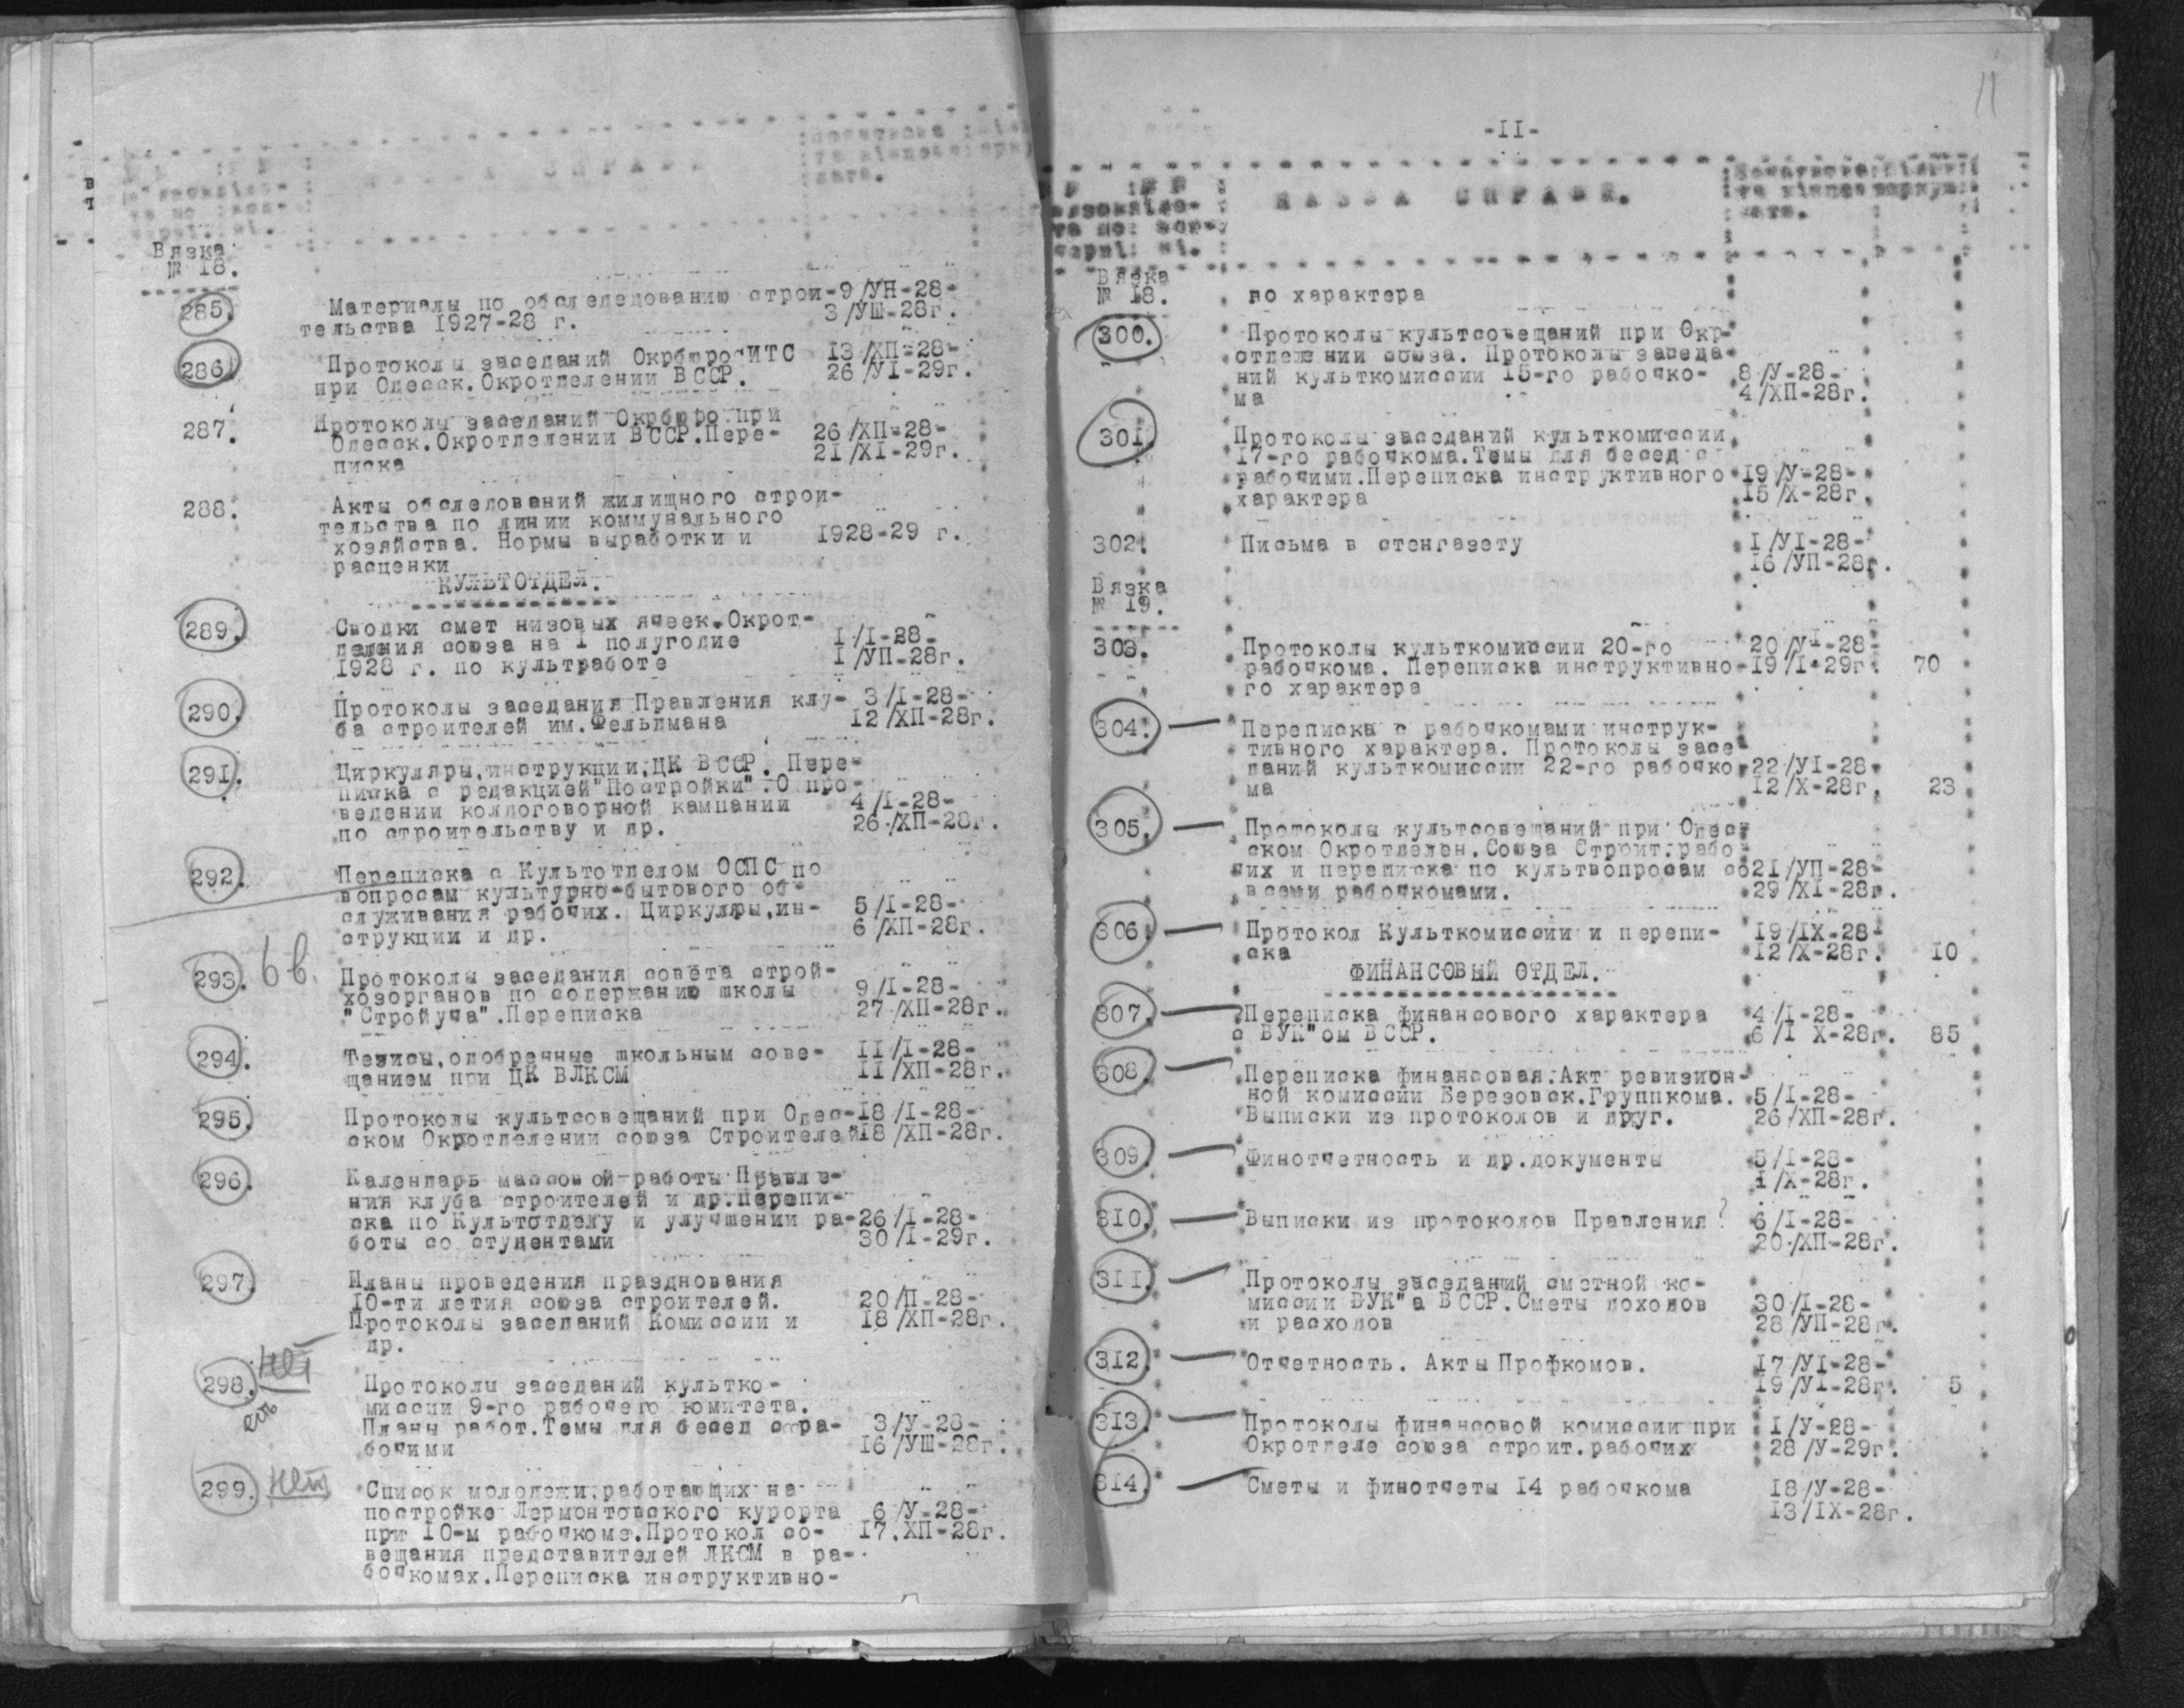 Вязка
№ 18.
285. Материалы по обследедованию строи- 9/УН-28-
тельства 1927-28 г. 3/УШ-28г.
286. Протоколы заседаний Окрбюро ИТС 13/ХП-28-
при Одесск.Окротделении ВССР. 26/УІ-29г.
287. Протоколы заседаний Окрбюро при
Одесск.Окротделении ВССР.Пере- 26/ХП-28-
писка 21/ХІ-29г.
288. Акты обследований жилищного строи-
тельства по линии коммунального
хозяйства. Нормы выработки и 1928-29 г.
расценки
КУЛЬТОТДЕЛ.
289. Сводки смет низовых ячеек.Окрот-
деления союза на 1 полугодие І/І-28-
1928 г. по культработе І/УП-28г.
290. Протоколы заседания Правления клу- 3/І-28-
ба строителей им.Фельдмана 12/ХП-28г.
291. Циркуляры,инструкции,ЦК ВССР. Пере-
писка с редакцией"Постройки".О про-
ведении колдоговорной кампании 4/І-28-
по строительству и др. 26/ХП-28г.
292. Переписка с Культотделом ОСПС по
вопросам культурно-бытового об-
служивания рабочих. Циркуляры,ин- 5/І-28-
струкции и др. 6/ХП-28г.
293. 6в. Протоколы заседания совета строй-
хозорганов по содержанию школы 9/І-28-
"Стройуча".Переписка 27/ХП-28г.
294. Тезисы,одобренные школьным сове- ІІ/І-28-
щанием при ЦК ВЛКСМ ІІ/ХП-28г.
295. Протоколы культсовещаний при Одес- 18/І-28-
ском Окротделении союза Строителей 18/ХП-28г.
296. Календарь массовой работы Правле-
ния клуба строителей и др.Перепи-
ска по Культотделу и улучшении ра- 26/І-28-
боты со студентами 30/І-29г.
297. Планы проведения празднования
10-ти летия союза строителей. 20/П-28-
Протоколы заседаний Комиссии и 18/ХП-28г.
др.
298. нет
Протоколы заседаний культко-
миссии 9-го рабочего комитета.
Планы работ.Темы для бесед с ра- 3/У-28-
бочими 16/УШ-28г.
299. нет Список молодежи,работающих на
постройке Лермонтовского курорта 6/У-28-
при 10-м рабочкоме.Протокол со- 17.ХП-28г.
вещания представителей ЛКСМ в ра-
бочкомах.Переписка инструктивно-
11
-ІІ-
НАЗВА СПРАВИ.
Вязка
№ 18. го характера
300. Протоколы культсовещаний при Окр-
отделении союза. Протоколы заседа-
ний культкомиссии 15-го рабочко- 8/У-28-
ма 4/ХП-28г.
301. Протоколы заседаний культкомиссии
17-го рабочкома.Темы для бесед с
рабочими.Переписка инструктивного 19/У-28-
характера 15/Х-28г.
302. Письма в стенгазету І/УІ-28-
16/УП-28г.
Вязка
№ 19.
303. Протоколы культкомиссии 20-го 20/УІ-28-
рабочкома. Переписка инструктивно- 19/І-29г. 70
го характера
304. Переписка с рабочкомами инструк-
тивного характера. Протоколы засе-
даний культкомиссии 22-го рабочко- 22/УІ-28-
ма 12/Х-28г. 23
305. Протоколы культсовещаний при Одес-
ском Окротделен.Союза Строит.рабо-
чих и переписка по культвопросам со 21/УП-28-
всеми рабочкомами. 29/ХІ-28г.
306. Протокол Культкомиссии и перепи- 19/ІХ-28-
ска 12/Х-28г. 10
ФИНАНСОВЫЙ ОТДЕЛ.
307. Переписка финансового характера 4/І-28-
с ВУК"ом ВССР. 6/І Х-28г. 85
308. Переписка финансовая.Акт ревизион-
ной комиссии Березовск.Группкома. 5/І-28-
Выписки из протоколов и друг. 26/ХП-28г.
309. Финотчетность и др.документы 5/І-28-
І/Х-28г.
310. Выписки из протоколов Правления ? 6/І-28-
20/ХП-28г.
311. Протоколы заседаний сметной ко-
миссии ВУК"а ВССР.Сметы доходов 30/І-28-
и расходов 28/УП-28г.
312. Отчетность. Акты Профкомов. 17/УІ-28-
19/УІ-28г. 5
313. Протоколы финансовой комиссии при І/У-28-
Окротделе союза строит.рабочих 28/У-29г.
314. Сметы и финотчеты 14 рабочкома 18/У-28-
13/ІХ-28г.